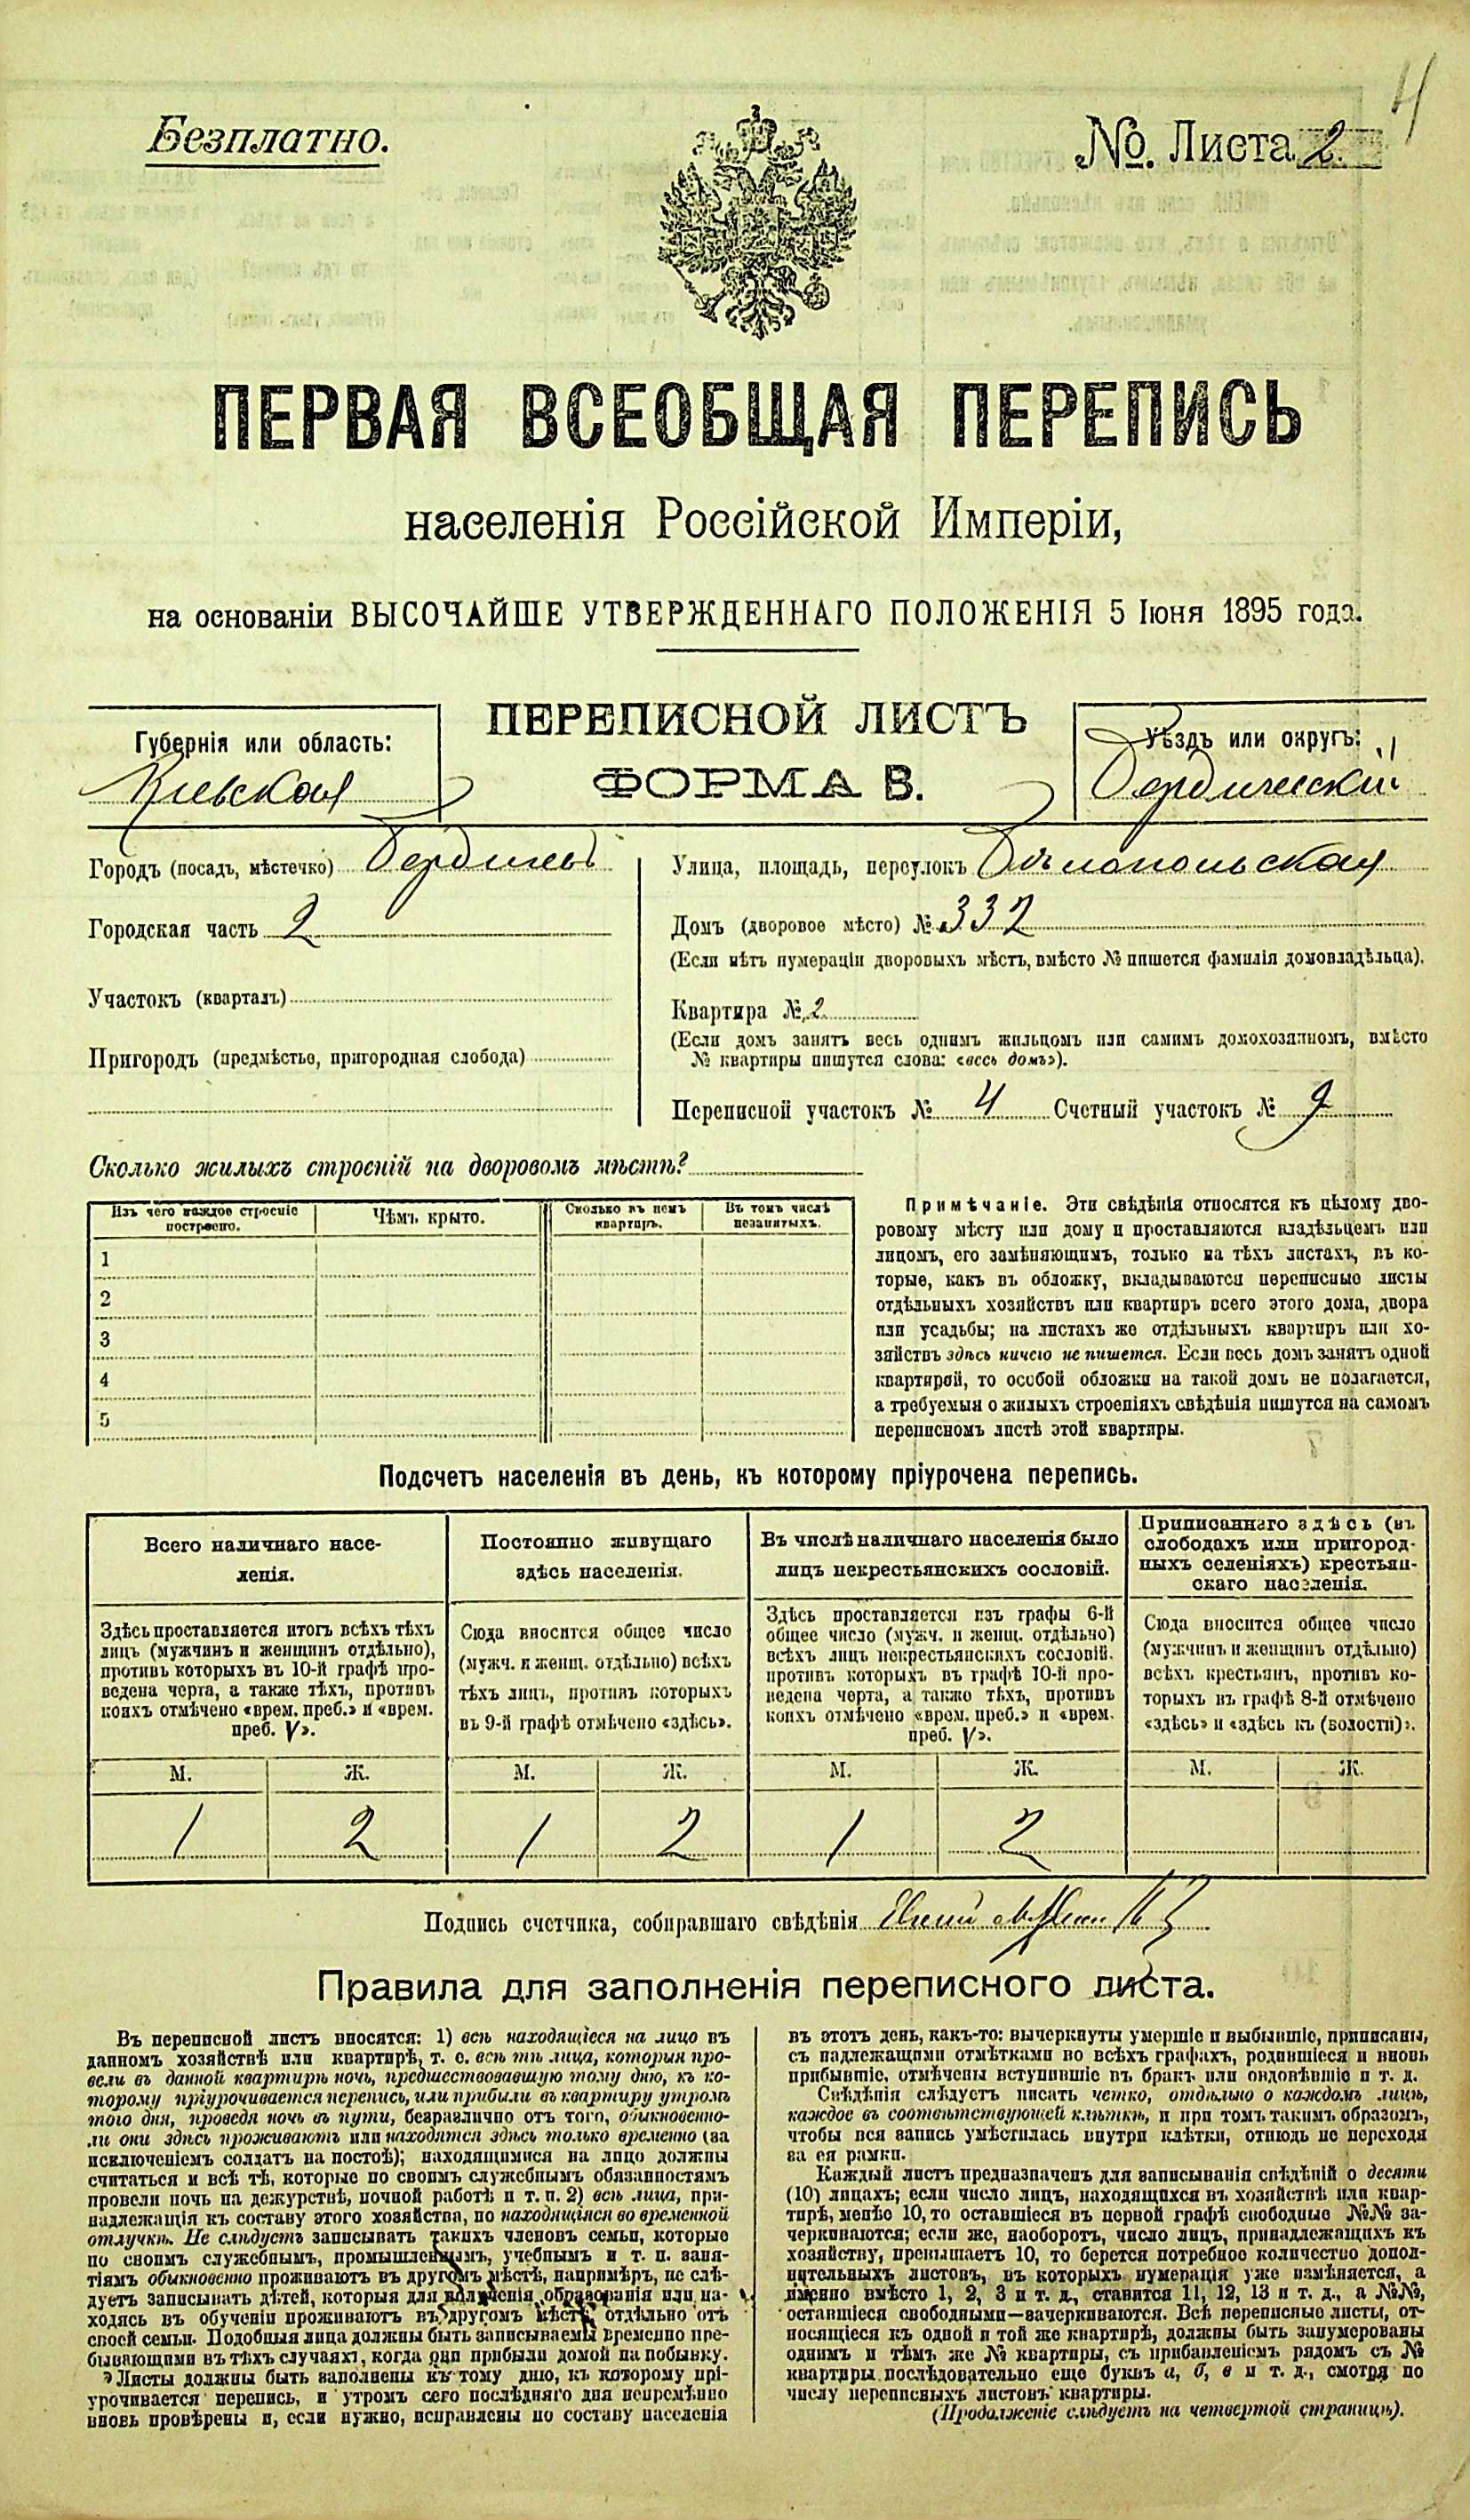 4
Безплатно.
№. Листа 2.
ПЕРВАЯ ВСЕОБЩАЯ ПЕРЕПИСЬ
населенія Россійской Имперіи,
на основаніи ВЫСОЧАЙШЕ УТВЕРЖДЕННАГО ПОЛОЖЕНІЯ 5 Іюня 1895 года.
ПЕРЕПИСНОЙ ЛИСТЪ
ФОРМА В.
Губернія или область:
Кіевская
Уѣздъ или округъ:
Бердическій
Городъ (посадъ, мѣстечко) Бердичевъ
Городская часть 2
Участокъ (кварталъ)
Пригородъ (предмѣстье, пригородная слобода)
Улица, площадь, переулокъ Бѣлопольская
Домъ (дворовое мѣсто) № 332
(Если нѣтъ нумераціи дворовыхъ мѣстъ, вмѣсто № пишется фамилія домовладѣльца).
Квартира № 2
(Если домъ занятъ весь однимъ жильцомъ или самимъ домохозяиномъ, вмѣсто
№ квартиры пишутся слова: «весь домъ»).
Переписной участокъ № 4 Счетный участокъ № 9
Сколько жилыхъ строеній на дворовомъ мѣстѣ?
Изъ чего каждое строеніе построено.
Чѣмъ крыто.
Сколько въ немъ квартиръ.
Въ томъ числѣ незанятыхъ.
1
2
3
4
5
Примѣчаніе. Эти свѣдѣнія относятся къ цѣлому дво-
ровому мѣсту или дому и проставляются владѣльцемъ или
лицомъ, его замѣняющимъ, только на тѣхъ листахъ, въ ко-
торые, какъ въ обложку, вкладываются переписные листы
отдѣльныхъ хозяйствъ или квартиръ всего этого дома, двора
или усадьбы; на листахъ же отдѣльныхъ квартиръ или хо-
зяйствъ здѣсь ничего не пишется. Если весь домъ занятъ одной
квартирой, то особой обложки на такой домъ не полагается,
а требуемыя о жилыхъ строеніяхъ свѣдѣнія пишутся на самомъ
переписномъ листѣ этой квартиры.
Подсчетъ населенія въ день, къ которому пріурочена перепись.
Всего наличнаго насе-
ленія.
Здѣсь проставляется итогъ всѣхъ тѣхъ
лицъ (мужчинъ и женщинъ отдѣльно),
противъ которыхъ въ 10-й графѣ про-
ведена черта, а также тѣхъ, противъ
коихъ отмѣчено «врем. преб.» и «врем.
преб. V».
Постоянно живущаго
здѣсь населенія.
Сюда вносится общее число
(мужч. и женщ. отдѣльно) всѣхъ
тѣхъ лицъ, противъ которыхъ
въ 9-й графѣ отмѣчено «здѣсь».
Въ числѣ наличнаго населенія было
лицъ некрестьянскихъ сословій.
Здѣсь проставляется изъ графы 6-й
общее число (мужч. и женщ. отдѣльно)
всѣхъ лицъ некрестьянскихъ сословій.
противъ которыхъ въ графѣ 10-й про-
ведена черта, а также тѣхъ, противъ
коихъ отмѣчено «врем. преб.» и «врем.
преб. V».
Приписаннаго здѣсь (въ
слободахъ или пригород-
ныхъ селеніяхъ) крестьян-
скаго населенія.
Сюда вносится общее число
(мужчинъ и женщинъ отдѣльно)
всѣхъ крестьянъ, противъ ко-
торыхъ въ графѣ 8-й отмѣчено
«здѣсь» и «здѣсь къ (волости)».
М. Ж. М. Ж. М. Ж. М. Ж.
1 2 1 2 1 2
Подпись счетчика, собиравшаго свѣдѣнія
Правила для заполненія переписного листа.
Въ переписной листъ вносятся: 1) всѣ находящіеся на лицо въ
данномъ хозяйствѣ или квартирѣ, т. е. всѣ тѣ лица, которыя про-
вели въ данной квартирѣ ночь, предшествовавшую тому дню, къ ко-
торому пріурочивается перепись, или прибыли въ квартиру утромъ
того дня, проведя ночь въ пути, безразлично отъ того, обыкновенно-
ли они здѣсь проживаютъ или находятся здѣсь только временно (за
исключеніемъ солдатъ на постоѣ); находящимися на лицо должны
считаться и всѣ тѣ, которые по своимъ служебнымъ обязанностямъ
провели ночь на дежурствѣ, ночной работѣ и т. п. 2) всѣ лица, при-
надлежащія къ составу этого хозяйства, но находящіяся во временной
отлучкѣ. Не слѣдуетъ записывать такихъ членовъ семьи, которые
по своимъ служебнымъ, промышленнымъ, учебнымъ и т. п. заня-
тіямъ обыкновенно проживаютъ въ другомъ мѣстѣ, напримѣръ, не слѣ-
дуетъ записывать дѣтей, которыя для полученія образованія или на-
ходясь въ обученіи проживаютъ въ другомъ мѣстѣ отдѣльно отъ
своей семьи. Подобныя лица должны быть записываемы временно пре-
бывающими въ тѣхъ случаяхъ, когда они прибыли домой на побывку.
Листы должны быть заполнены къ тому дню, къ которому прі-
урочивается перепись, и утромъ сего послѣдняго дня непремѣнно
вновь провѣрены и, если нужно, исправлены по составу населенія
въ этотъ день, какъ-то: вычеркнуты умершіе и выбывшіе, приписаны,
съ надлежащими отмѣтками во всѣхъ графахъ, родившіеся и вновь
прибывшіе, отмѣчены вступившіе въ бракъ или овдовѣвшіе и т. д.
Свѣдѣнія слѣдуетъ писать четко, отдѣльно о каждомъ лицѣ,
каждое въ соотвѣтствующей клѣткѣ, и при томъ такимъ образомъ,
чтобы вся запись умѣстилась внутри клѣтки, отнюдь не переходя
за ея рамки.
Каждый листъ предназначенъ для записыванія свѣдѣній о десяти
(10) лицахъ; если число лицъ, находящихся въ хозяйствѣ или квар-
тирѣ, менѣе 10, то оставшіеся въ первой графѣ свободные №№ за-
черкиваются; если же, наоборотъ, число лицъ, принадлежащихъ къ
хозяйству, превышаетъ 10, то берется потребное количество допол-
нительныхъ листовъ, въ которыхъ нумерація уже измѣняется, а
именно вмѣсто 1, 2, 3 и т. д., ставится 11, 12, 13 и т. д., а №№,
оставшіеся свободными—зачеркиваются. Всѣ переписные листы, от-
носящіеся къ одной и той же квартирѣ, должны быть занумерованы
однимъ и тѣмъ же № квартиры, съ прибавленіемъ рядомъ съ №
квартиры послѣдовательно еще буквъ а, б, в и т. д., смотря по
числу переписныхъ листовъ квартиры.
(Продолженіе слѣдуетъ на четвертой страницѣ).